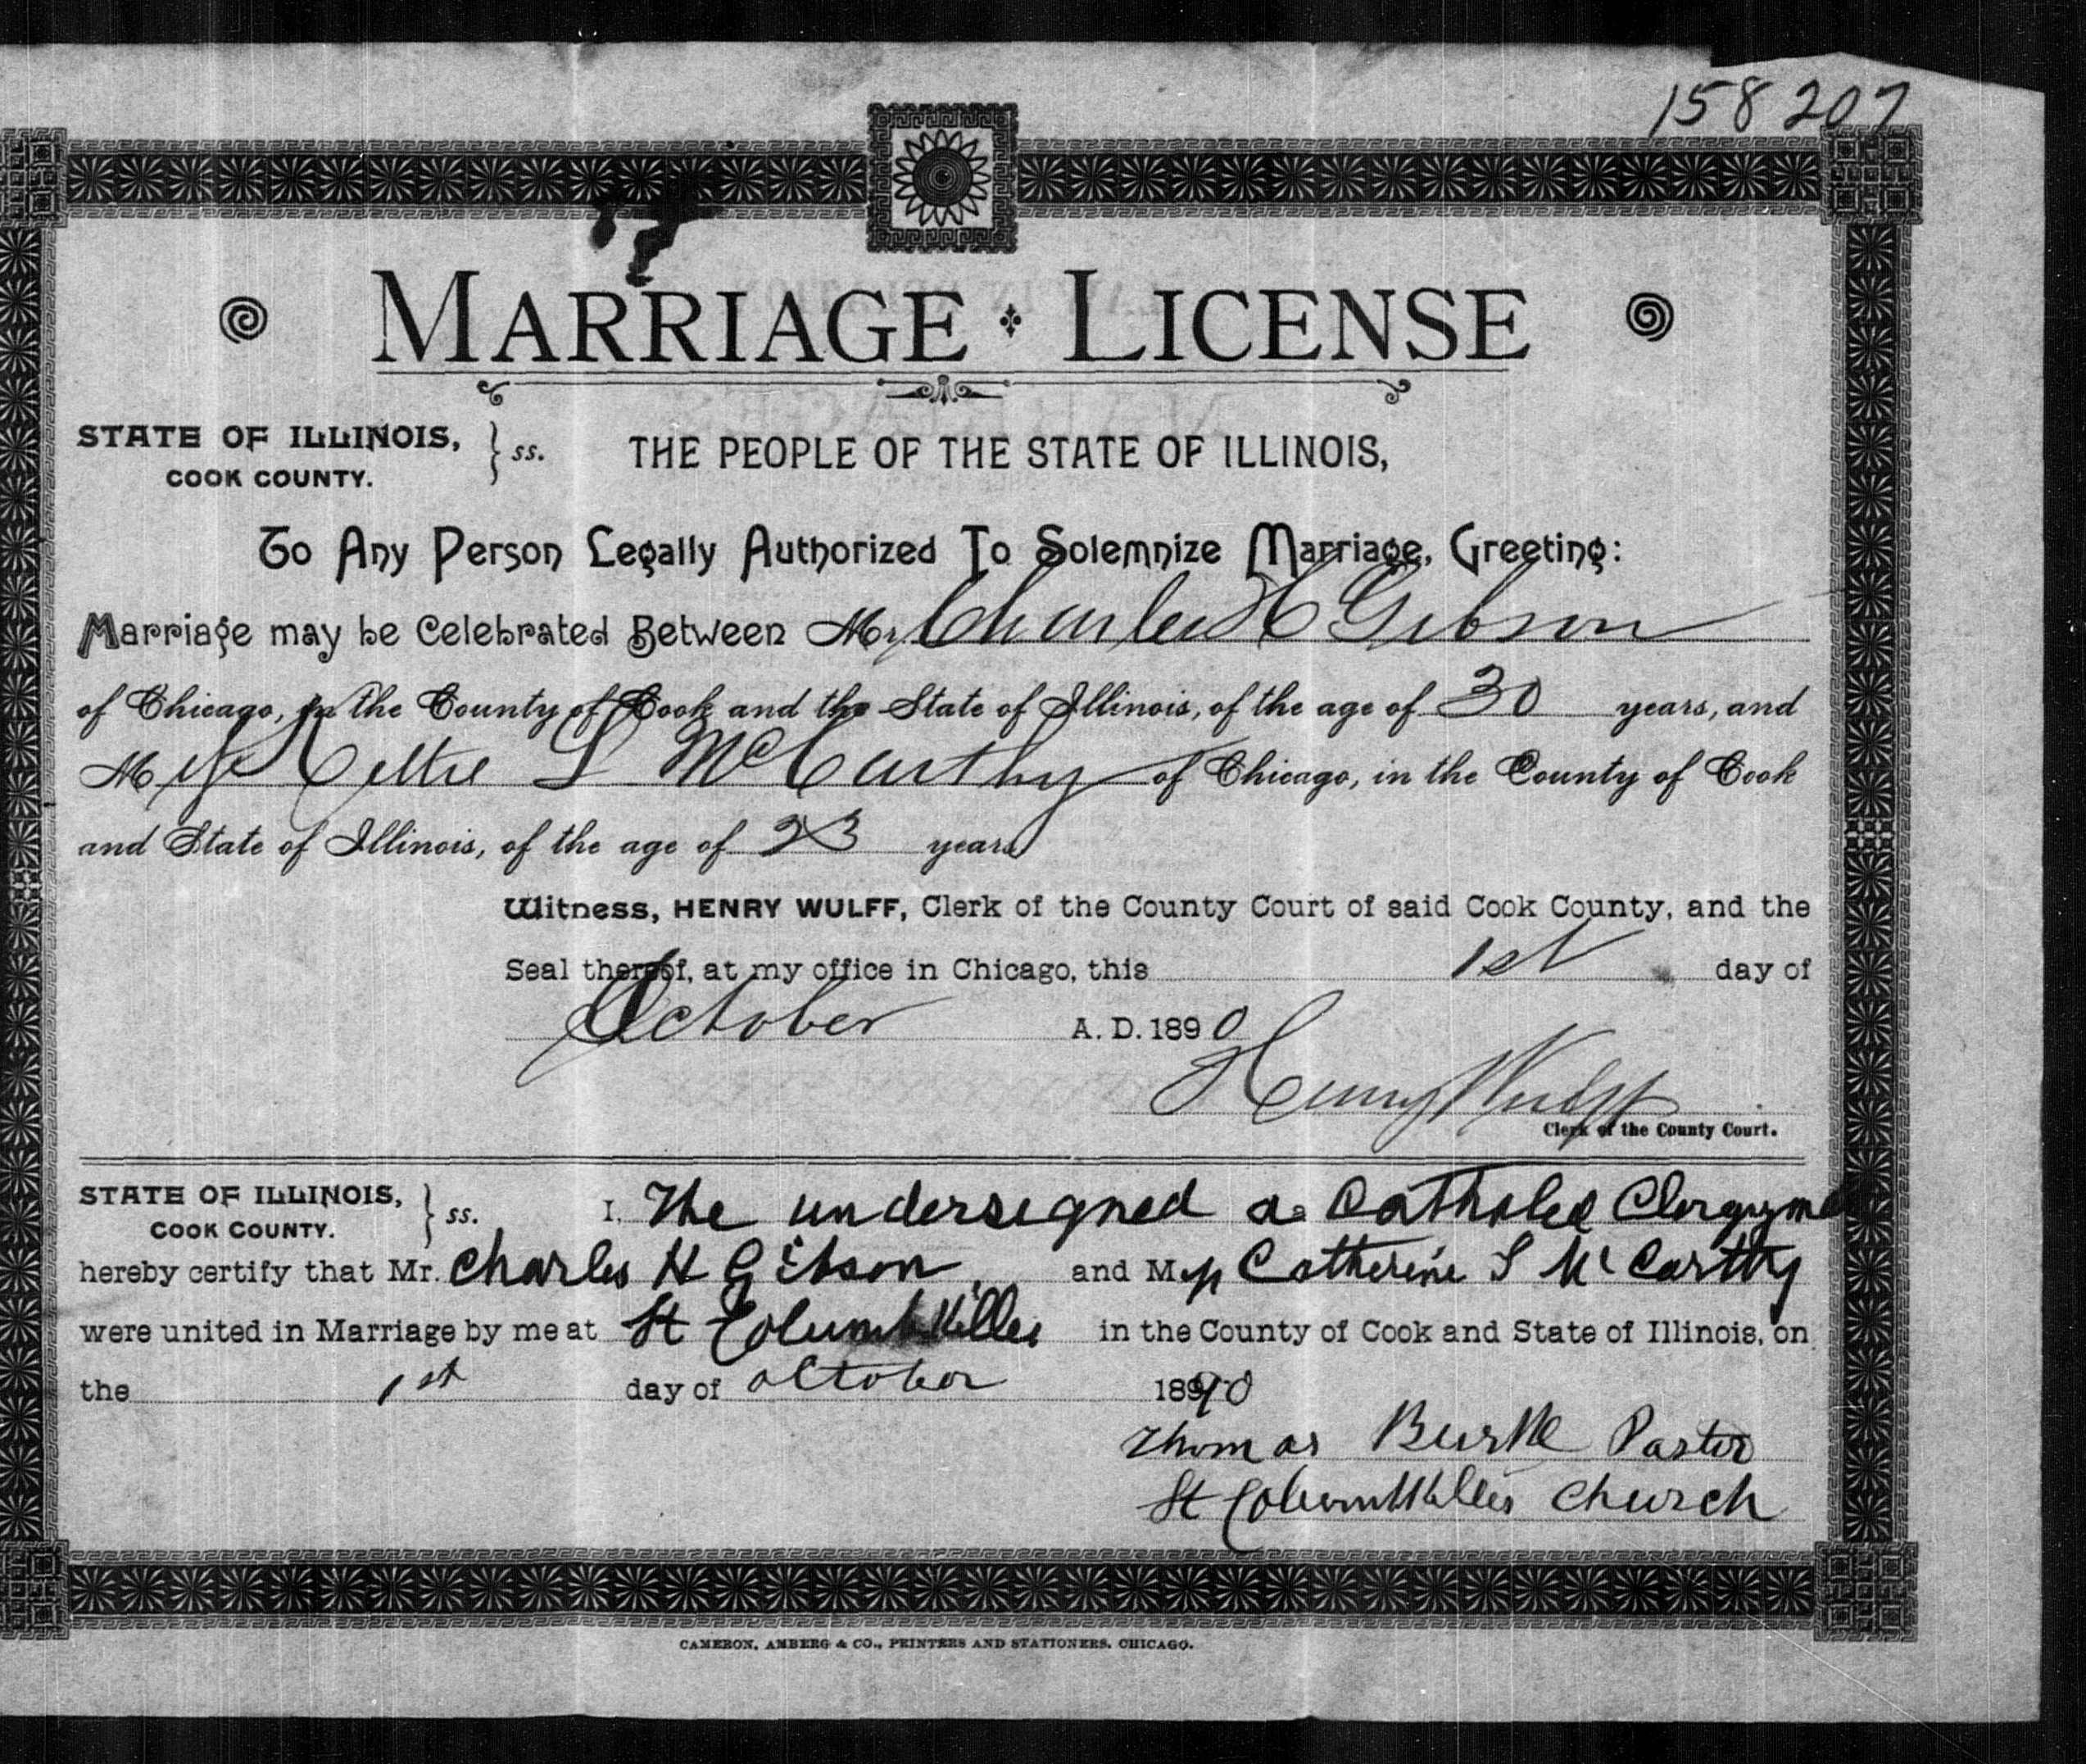 158207
MARRIAGE LICENSE
STATE OF ILLINOIS, COOK COUNTY. } ss. THE PEOPLE OF THE STATE OF ILLINOIS,
To Any Person Legally Authorized To Solemnize Marriage, Greeting:
Marriage may be Celebrated Between Mr Charles H Gibson
of Chicago, in the County of Cook and the State of Illinois, of the age of 30 years, and
Miss Kittie S McCarthy of Chicago, in the County of Cook
and State of Illinois, of the age of 23 years
Witness, HENRY WULFF, Clerk of the County Court of said Cook County, and the
Seal thereof, at my office in Chicago, this 1st day of
October A. D. 1890
Henry Wulff
Clerk of the County Court.
STATE OF ILLINOIS, COOK COUNTY. } ss. I, The undersigned a Catholic Clergyman
hereby certify that Mr. Charles H Gibson and Miss Catherine S McCarthy
were united in Marriage by me at St Columbkilles in the County of Cook and State of Illinois, on
the 1st day of October 1890
Thomas Burke Pastor
St Columbkilles Church
CAMERON, AMBERG & CO., PRINTERS AND STATIONERS, CHICAGO.